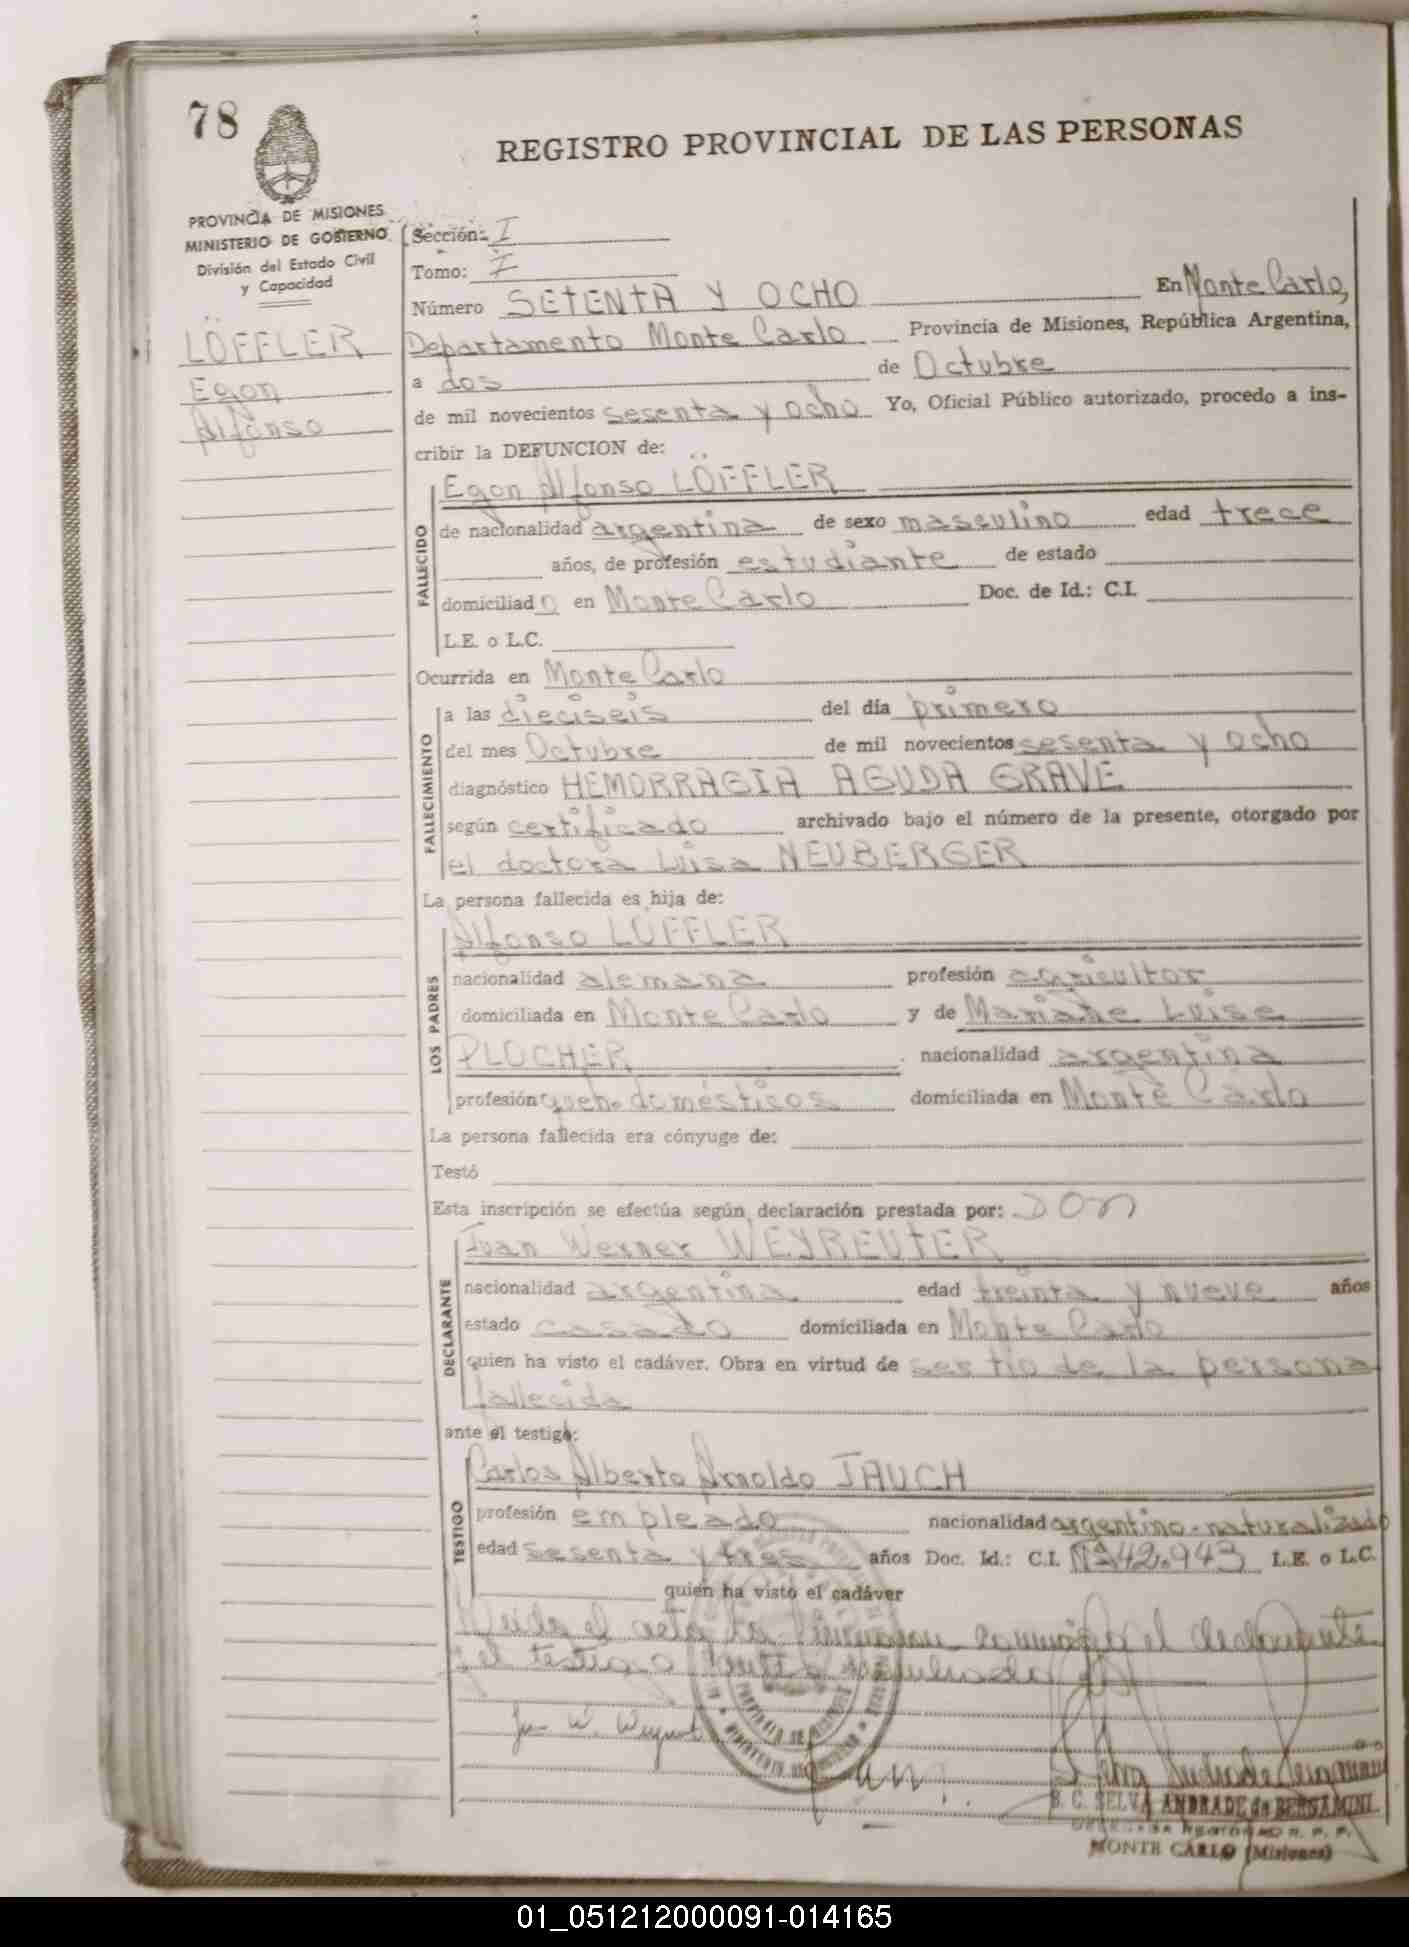 78
REGISTRO PROVINCIAL DE LAS PERSONAS
PROVINCIA DE MISIONES
MINISTERIO DE GOBIERNO
División del Estado Civil
y Capacidad
LÖFFLER
Egon
Alfonso
Sección: I
Tomo: I
Número SETENTA Y OCHO En Monte Carlo,
Departamento Monte Carlo Provincia de Misiones, República Argentina,
a dos de Octubre
de mil novecientos sesenta y ocho Yo, Oficial Público autorizado, procedo a ins-
cribir la DEFUNCION de:
Egon Alfonso LÖFFLER
FALLECIDO
de nacionalidad argentina de sexo masculino edad trece
años, de profesión estudiante de estado
domiciliado en Monte Carlo Doc. de Id.: C.I.
L.E. o L.C.
Ocurrida en Monte Carlo
FALLECIMIENTO
a las dieciseis del día primero
del mes Octubre de mil novecientos sesenta y ocho
diagnóstico HEMORRAGIA AGUDA GRAVE
según certificado archivado bajo el número de la presente, otorgado por
el doctora Luisa NEUBERGER
La persona fallecida es hija de:
LOS PADRES
Alfonso LÖFFLER
nacionalidad alemana profesión agricultor
domiciliada en Monte Carlo y de Mariane Luise
PLOCHER nacionalidad argentina
profesión queh. domésticos domiciliada en Monte Carlo
La persona fallecida era cónyuge de:
Testó
Esta inscripción se efectúa según declaración prestada por: DON
DECLARANTE
Juan Werner WEYREUTER
nacionalidad argentina edad treinta y nueve años
estado casado domiciliada en Monte Carlo
quien ha visto el cadáver. Obra en virtud de ser tío de la persona
fallecida
ante el testigo:
TESTIGO
Carlos Alberto Arnoldo JAUCH
profesión empleado nacionalidad argentino-naturalizado
edad sesenta y tres años Doc. Id.: C.I. Nº 42.943 L.E. o L.C.
quien ha visto el cadáver
Leída el acta la el declarante
y el testigo
S. C. SELVA ANDRADE de BERGAMINI
MONTE CARLO (Misiones)
01_051212000091-014165